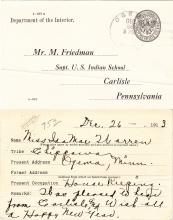 Department of the Interior.
Mr. M. Friedman
Supt. U. S. Indian School
Carlisle
Pennsylvania
Dec. 26 - 1913
Name Miss Ida Mae Warren
Tribe Chippewa
Present Address Ogema, Minn.
Former Address
Present Occupation House Keeping
Remarks: Was pleased to hear
from Carlisle. Wish all
a Happy New Year.